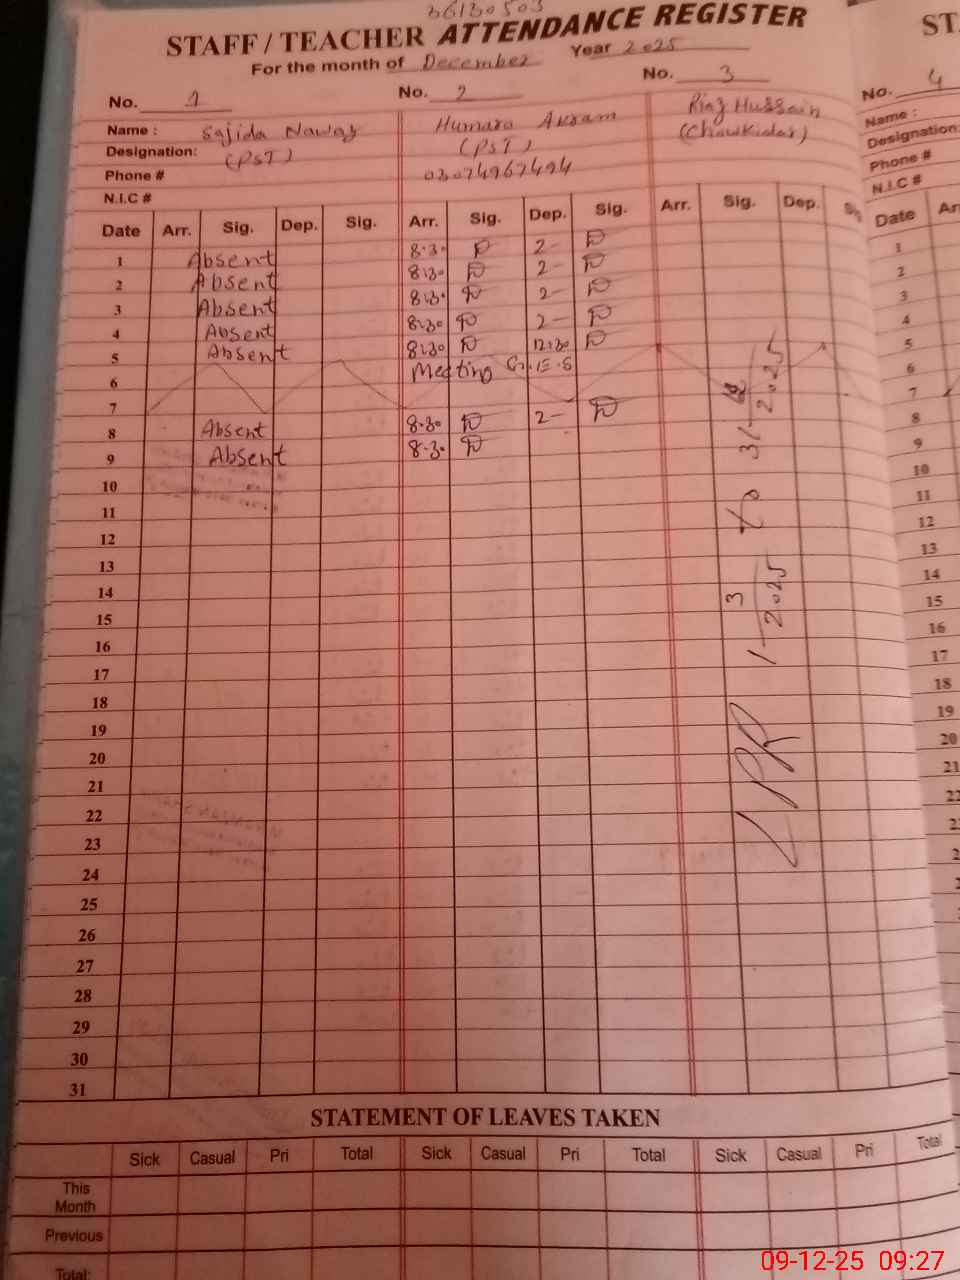 36130503
STAFF / TEACHER ATTENDANCE REGISTER
For the month of December Year 2025
No. 1 No. 2 No. 3
Name : Sajida Nawaz Humara Akram Riaz Hussain
Designation: (PST) (PST) (Chowkidar)
Phone # 03074967494
N.I.C #
Date Arr. Sig. Dep. Sig. Arr. Sig. Dep. Sig. Arr. Sig. Dep.
1 Absent 8.30 2-
2 Absent 8:30 2-
3 Absent 8:30 2-
4 Absent 8:30 2-
5 Absent 8:30 12:30
6 Meeting
7
8 Absent 8.30 2-
9 Absent 8.30
10
11
12
13
14
15
16
17
18
19
20
21
22
23
24
25
26
27
28
29
30
31
LPR 1-3-2025 to 31-12-2025
STATEMENT OF LEAVES TAKEN
Sick Casual Pri Total Sick Casual Pri Total Sick Casual Pri Total
This Month
Previous
Total:
ST
No. 4
Name :
Designation:
Phone #
N.I.C #
Date
1
2
3
4
5
6
7
8
9
10
11
12
13
14
15
16
17
18
19
20
21
22
09-12-25 09:27